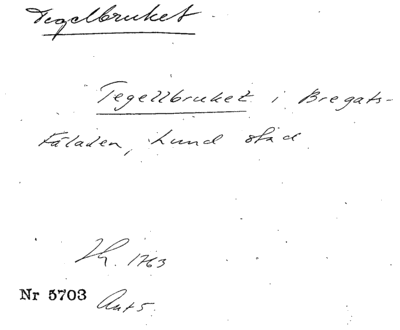 Tegelbruket
Tegellbruket i Bregats-
Fäladen, Lund stad
1763
Nr 5703
Ant 5.